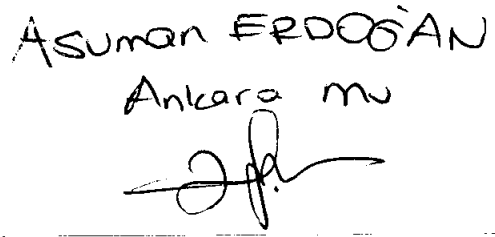 Asuman ERDOĞAN
Ankara mv